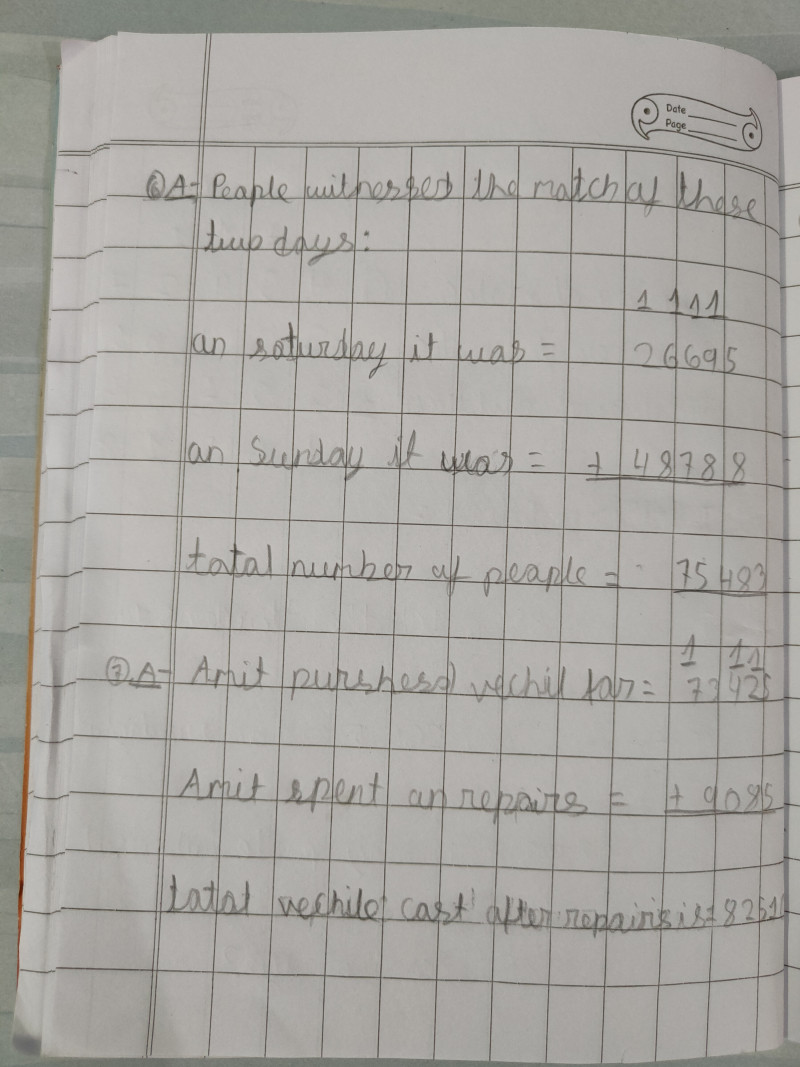 Date
Page
⑥A- Peaple witnessed the match of those
twp days:
1 1 1 1
an saturday it was = 26695
an Sunday it was = + 48788
tatal number of peaple = 75483
1 11
⑦.A- Amit purshesd vechil far = 73425
Amit spent an repairs = + 9085
tatal vechile cast after repairis is =